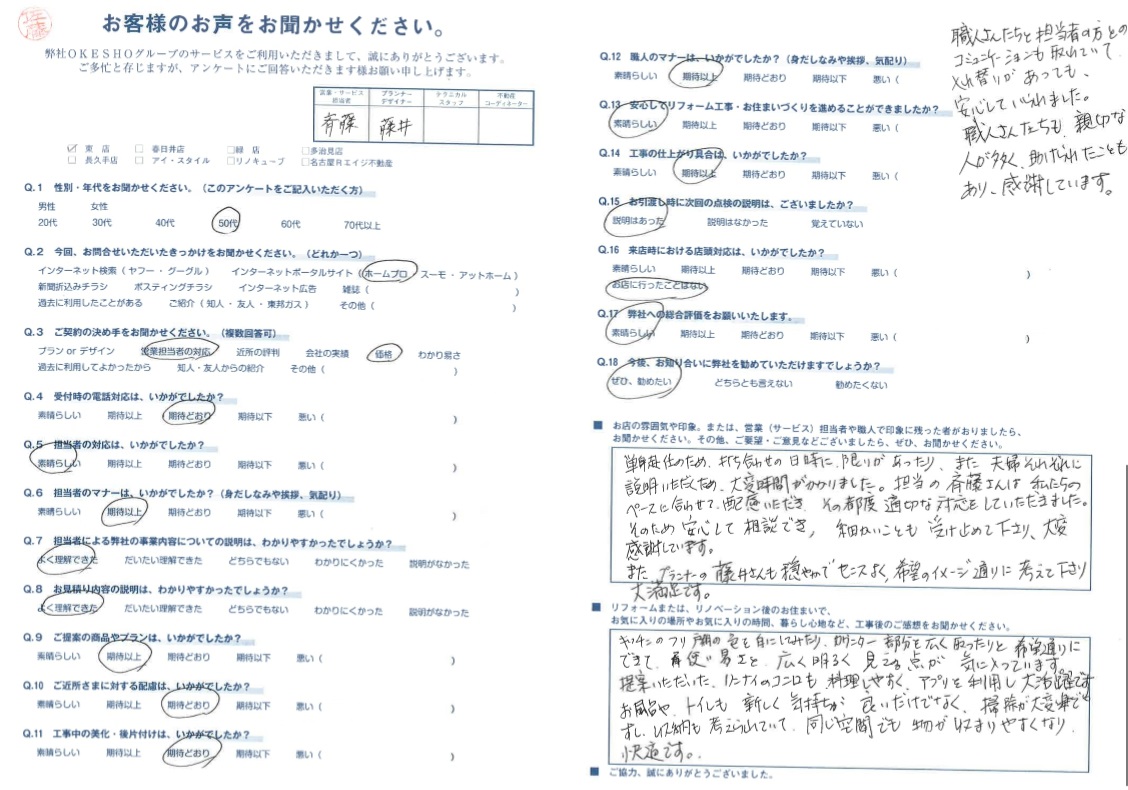 佐藤
お客様のお声をお聞かせください。
弊社ＯＫＥＳＨＯグループのサービスをご利用いただきまして、誠にありがとうございます。
ご多忙と存じますが、アンケートにご回答いただきます様お願い申し上げます。
営業・サービス担当者 プランナーデザイナー テクニカルスタッフ 不動産コーディネーター
斉藤 藤井
☑ 東 店 □ 春日井店 □緑 店 □多治見店
□ 長久手店 □ アイ・スタイル □リノキューブ □名古屋Ｒエイジ不動産
Q.1 性別・年代をお聞かせください。（このアンケートをご記入いただく方）
男性 女性
20代 30代 40代 50代 60代 70代以上
Q.2 今回、お問合せいただいたきっかけをお聞かせください。（どれか一つ）
インターネット検索（ ヤフー ・ グーグル ） インターネットポータルサイト（ ホームプロ ・ スーモ ・ アットホーム ）
新聞折込みチラシ ポスティングチラシ インターネット広告 雑誌（ ）
過去に利用したことがある ご紹介（ 知人 ・ 友人 ・ 東邦ガス ） その他（ ）
Q.3 ご契約の決め手をお聞かせください。（複数回答可）
プラン or デザイン 営業担当者の対応 近所の評判 会社の実績 価格 わかり易さ
過去に利用してよかったから 知人・友人からの紹介 その他（ ）
Q.4 受付時の電話対応は、いかがでしたか？
素晴らしい 期待以上 期待どおり 期待以下 悪い（ ）
Q.5 担当者の対応は、いかがでしたか？
素晴らしい 期待以上 期待どおり 期待以下 悪い（ ）
Q.6 担当者のマナーは、いかがでしたか？（身だしなみや挨拶、気配り）
素晴らしい 期待以上 期待どおり 期待以下 悪い（ ）
Q.7 担当者による弊社の事業内容についての説明は、わかりやすかったでしょうか？
よく理解できた だいたい理解できた どちらでもない わかりにくかった 説明がなかった
Q.8 お見積り内容の説明は、わかりやすかったでしょうか？
よく理解できた だいたい理解できた どちらでもない わかりにくかった 説明がなかった
Q.9 ご提案の商品やプランは、いかがでしたか？
素晴らしい 期待以上 期待どおり 期待以下 悪い（ ）
Q.10 ご近所さまに対する配慮は、いかがでしたか？
素晴らしい 期待以上 期待どおり 期待以下 悪い（ ）
Q.11 工事中の美化・後片付けは、いかがでしたか？
素晴らしい 期待以上 期待どおり 期待以下 悪い（ ）
Q.12 職人のマナーは、いかがでしたか？（身だしなみや挨拶、気配り）
素晴らしい 期待以上 期待どおり 期待以下 悪い（
Q.13 安心してリフォーム工事・お住まいづくりを進めることができましたか？
素晴らしい 期待以上 期待どおり 期待以下 悪い（
Q.14 工事の仕上がり具合は、いかがでしたか？
素晴らしい 期待以上 期待どおり 期待以下 悪い（
Q.15 お引渡し時に次回の点検の説明は、ございましたか？
説明はあった 説明はなかった 覚えていない
Q.16 来店時における店頭対応は、いかがでしたか？
素晴らしい 期待以上 期待どおり 期待以下 悪い（ ）
お店に行ったことはない
Q.17 弊社への総合評価をお願いいたします。
素晴らしい 期待以上 期待どおり 期待以下 悪い（ ）
Q.18 今後、お知り合いに弊社を勧めていただけますでしょうか？
ぜひ、勧めたい どちらとも言えない 勧めたくない
職人さんたちと担当者の方との
コミュニケーションも取れていて、
入れ替りがあっても、
安心していられました。
職人さんたちも、親切な
人が多く、助けられたことも
あり、感謝しています。
■ お店の雰囲気や印象。または、営業（サービス）担当者や職人で印象に残った者がおりましたら、
お聞かせください。その他、ご要望・ご意見などございましたら、ぜひ、お聞かせください。
単身赴任のため、打ち合わせの日時に、限りがあったり、また 夫婦それぞれに
説明いただくため、大変時間がかかりました。担当の斉藤さんは 私たちの
ペースに合わせて、配慮いただき、その都度 適切な対応をしていただきました。
そのため安心して相談でき、細かいことも受け止めて下さり、大変
感謝しています。
また プランナーの藤井さんも穏やかでセンスよく、希望のイメージ通りに考えて下さり
大満足です。
■ リフォームまたは、リノベーション後のお住まいで、
お気に入りの場所やお気に入りの時間、暮らし心地など、工事後のご感想をお聞かせください。
キッチンのフリ戸棚の色を白にしてみたり、カウンター部分を広く取ったりと希望通りに
できて、使い易さと、広く明るく見える点が 気に入っています。
提案いただいた、リンナイのコンロも料理しやすく、アプリを利用し大活躍です
お風呂や、トイレも 新しく気持ちが 良いだけでなく、掃除が大変楽で
すし、収納も考えられていて、同じ空間でも物が収まりやすくなり、
快適です。
■ ご協力、誠にありがとうございました。